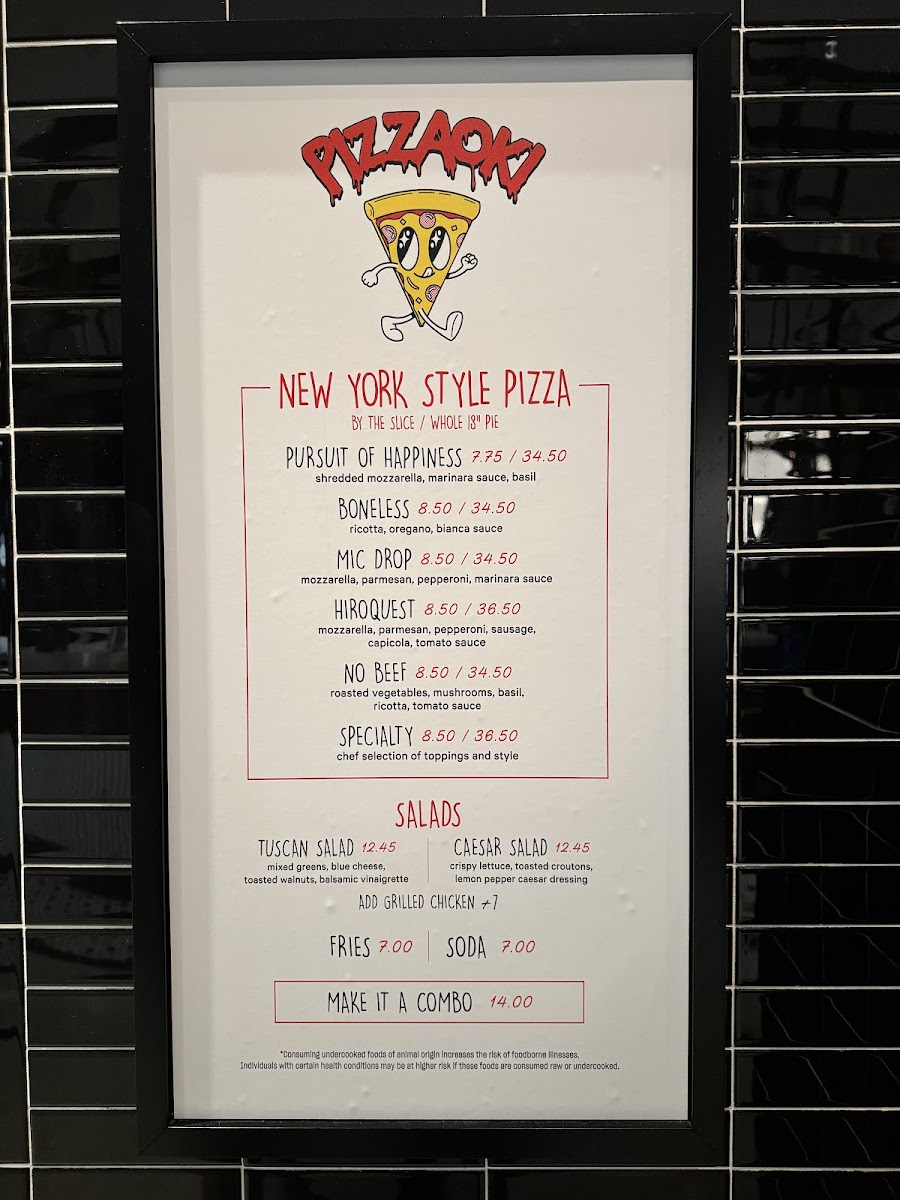 PIZZAOKI
NEW YORK STYLE PIZZA
BY THE SLICE / WHOLE 18" PIE
PURSUIT OF HAPPINESS 7.75 / 34.50
shredded mozzarella, marinara sauce, basil
BONELESS 8.50 / 34.50
ricotta, oregano, bianca sauce
MIC DROP 8.50 / 34.50
mozzarella, parmesan, pepperoni, marinara sauce
HIROQUEST 8.50 / 36.50
mozzarella, parmesan, pepperoni, sausage,
capicola, tomato sauce
NO BEEF 8.50 / 34.50
roasted vegetables, mushrooms, basil,
ricotta, tomato sauce
SPECIALTY 8.50 / 36.50
chef selection of toppings and style
SALADS
TUSCAN SALAD 12.45
mixed greens, blue cheese,
toasted walnuts, balsamic vinaigrette
CAESAR SALAD 12.45
crispy lettuce, toasted croutons,
lemon pepper caesar dressing
ADD GRILLED CHICKEN +7
FRIES 7.00
SODA 7.00
MAKE IT A COMBO 14.00
*Consuming undercooked foods of animal origin increases the risk of foodborne illnesses.
Individuals with certain health conditions may be at higher risk if these foods are consumed raw or undercooked.